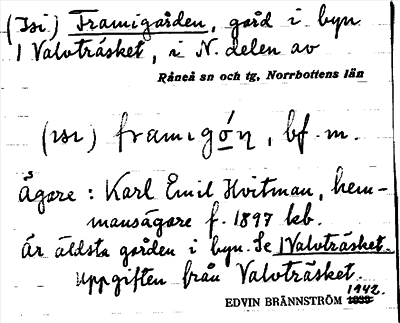 (Isi) Framigården, gård i byn
1 Valvträsket, i N. delen av
Råneå sn och tg, Norrbottens län
(ısı) framıgó̱ŋ, bf. m.
Ägare: Karl Emil Hvitman, hem-
mansägare f. 1897 leb.
Är äldsta gården i byn. Se 1 Valvträsket.
Uppgiften från Valvträsket.
1942.
EDVIN BRÄNNSTRÖM 1939